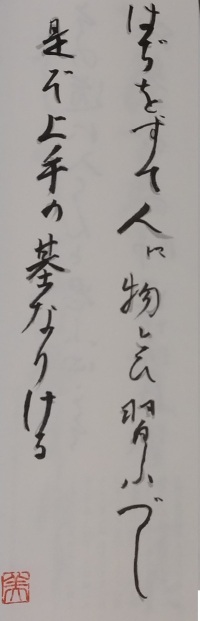 はぢをすて人に物とひ習ふべし
是ぞ上手の基なりける